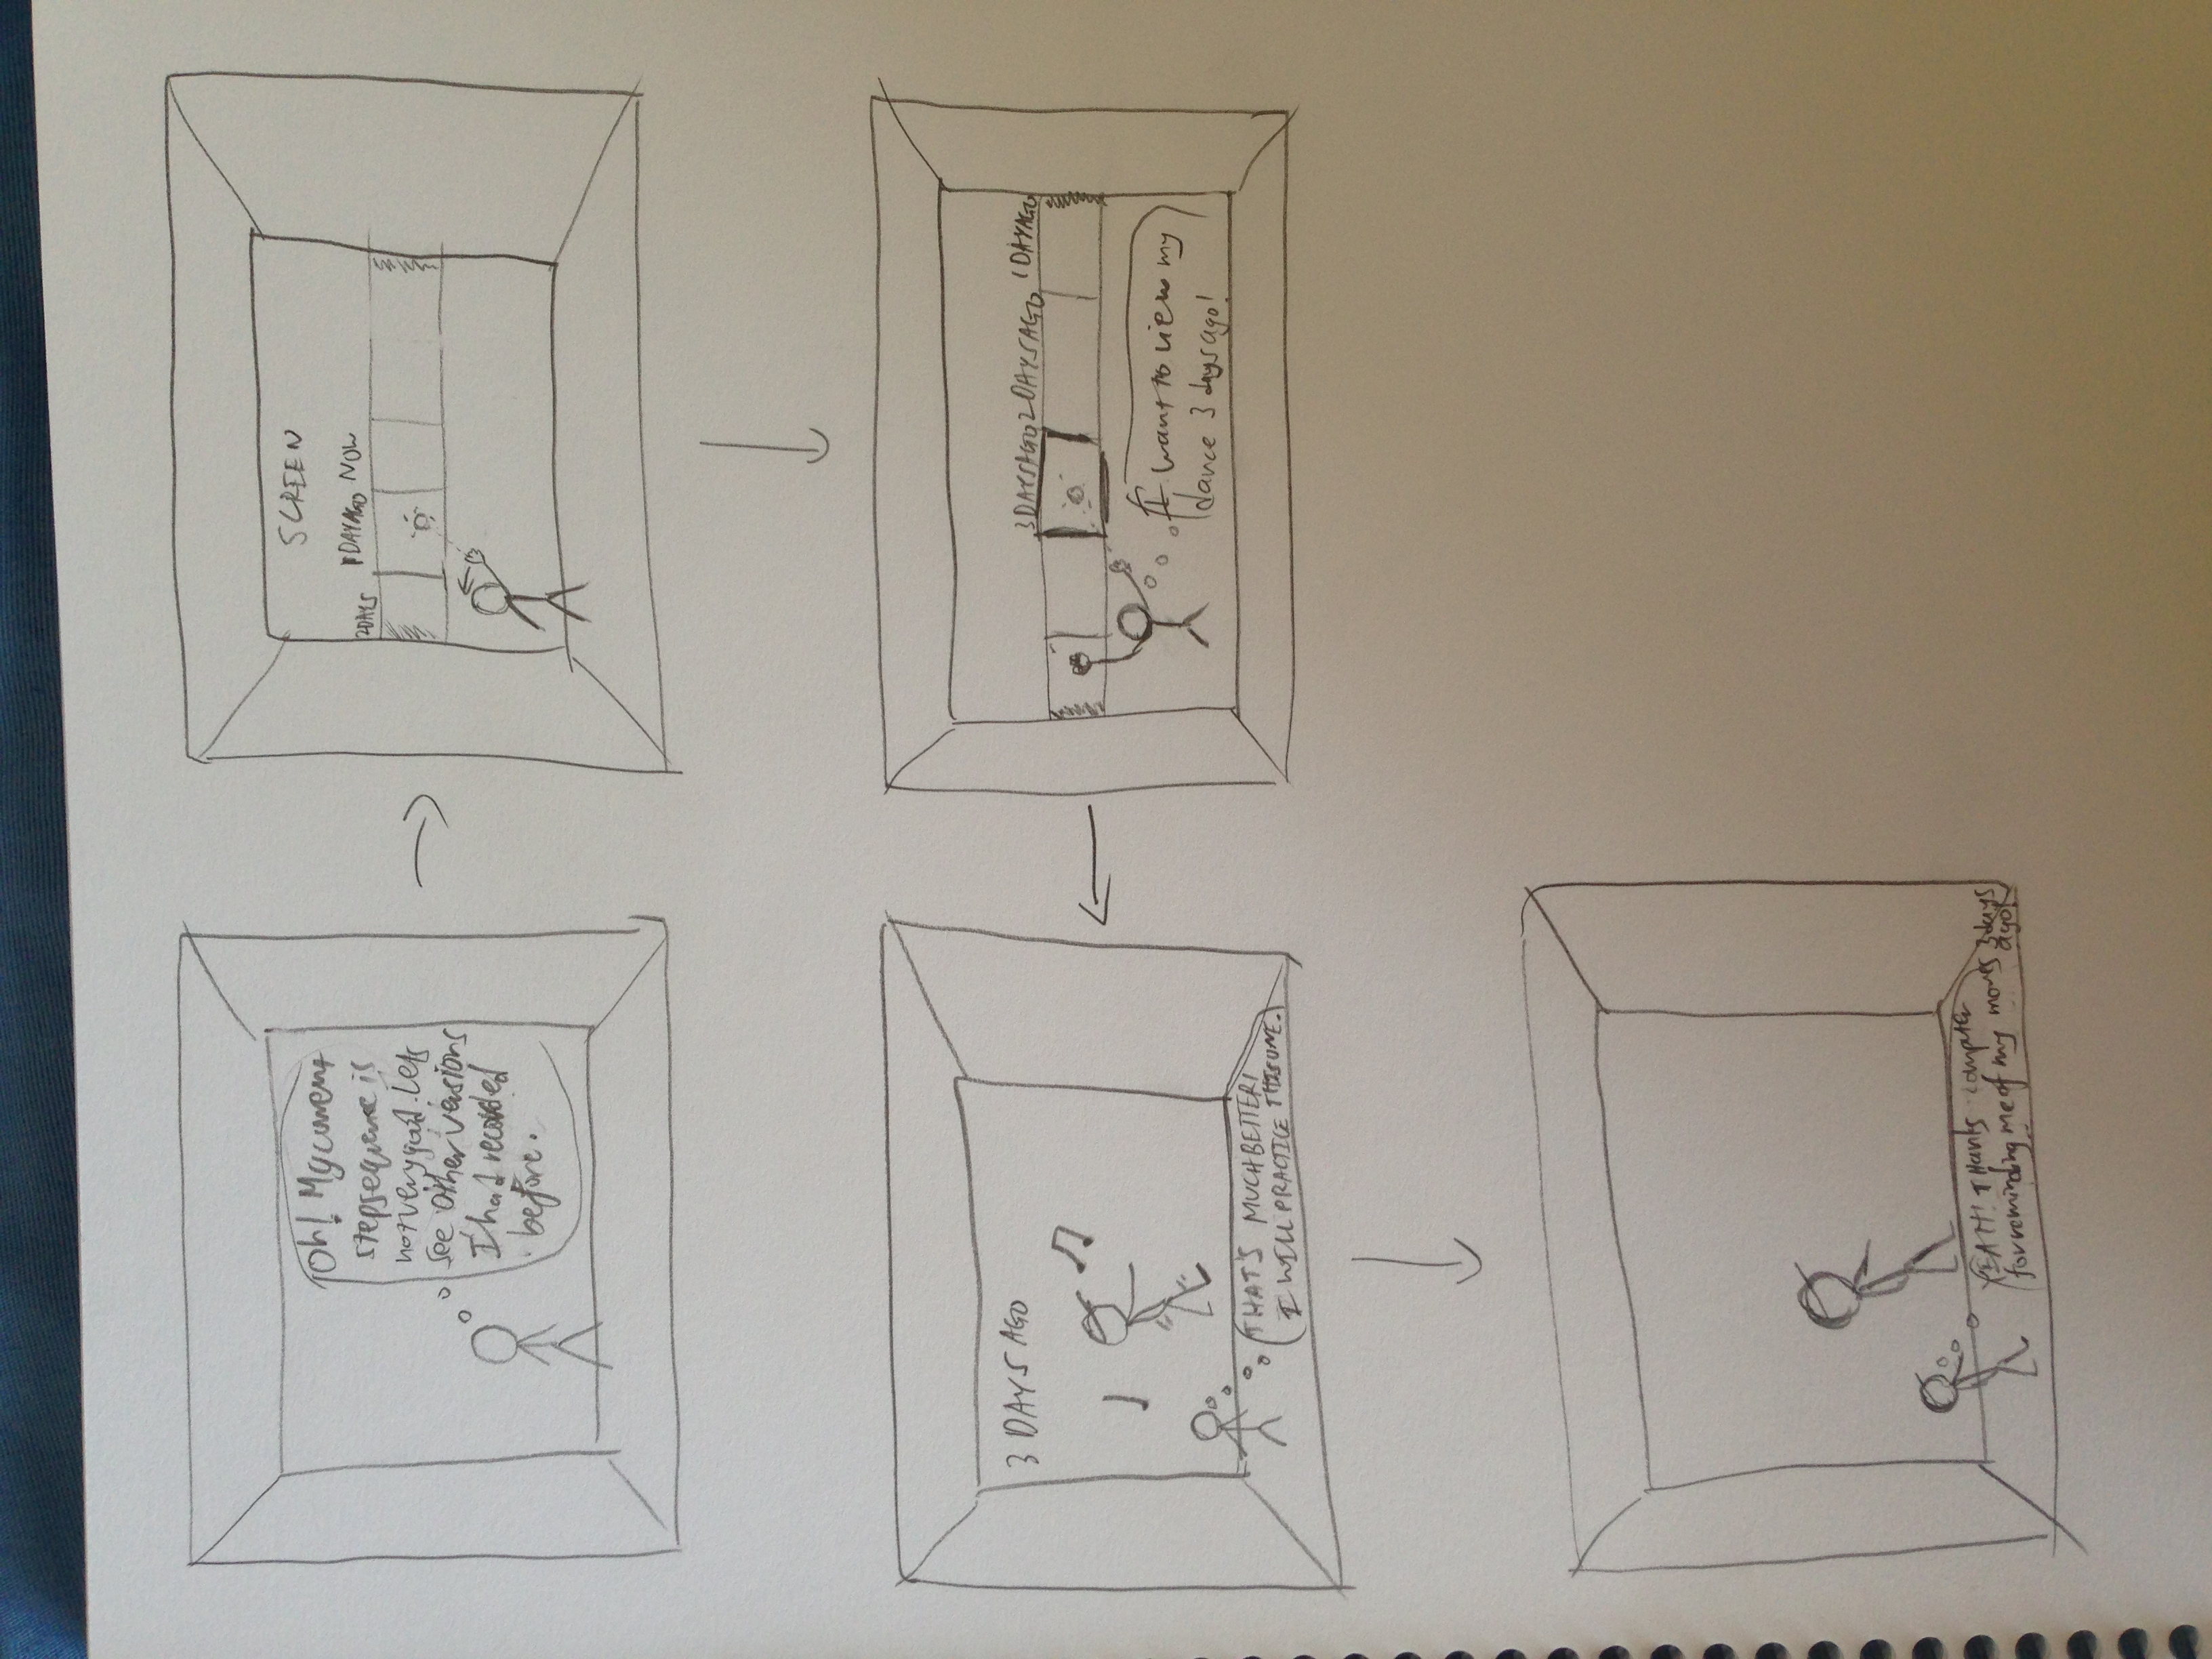 Oh! My current
stepsequence is
not very good. Lets
see other versions
I had recorded
before.
SCREEN
2DAYS 1DAYAGO NOW
3DAYSAGO 2DAYSAGO 1DAYAGO
I want to view my
dance 3 days ago!
3 DAYS AGO
THAT'S MUCH BETTER!
I WILL PRACTICE THIS ONE.
YEAH! Thanks computer
for reminding me of my moves 3 days
ago!